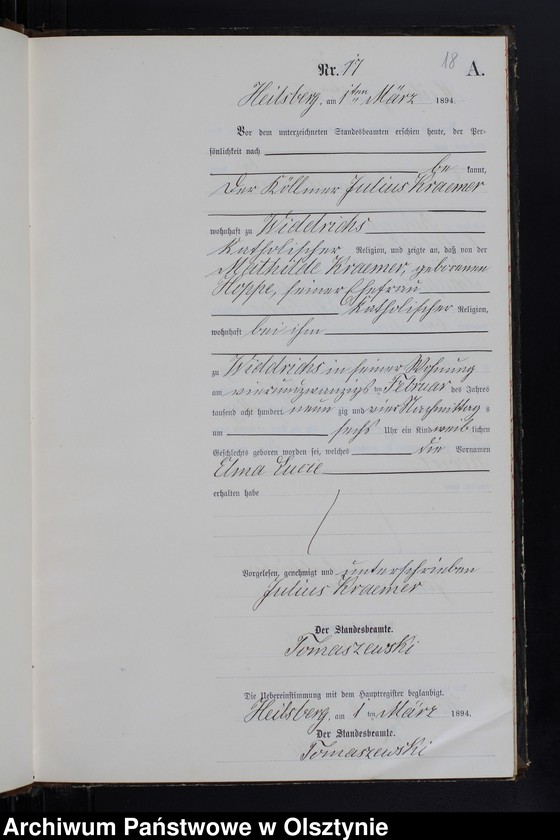 18
Nr. 17 A.
Heilsberg, am 1 ten März 1894.
Vor dem unterzeichneten Standesbeamten erschien heute, der Per-
sönlichkeit nach
be kannt,
der Köllmer Julius Kraemer
wohnhaft zu Widdrichs
katholischer Religion, und zeigte an, daß von der
Mathilde Kraemer, geborenen
Hoppe, seiner Ehefrau
katholischer Religion,
wohnhaft bei ihm
zu Widdrichs in seiner Wohnung
am vierundzwanzigs ten Februar des Jahres
tausend acht hundert neun zig und vier Nachmittag s
um sechs Uhr ein Kind weib lichen
Geschlechts geboren worden sei, welches die Vornamen
Elma Lucie
erhalten habe
Vorgelesen, genehmigt und unterschrieben
Julius Kraemer
Der Standesbeamte.
Tomaszewski
Die Uebereinstimmung mit dem Hauptregister beglaubigt.
Heilsberg, am 1 ten März 1894.
Der Standesbeamte.
Tomaszewski
Archiwum Państwowe w Olsztynie